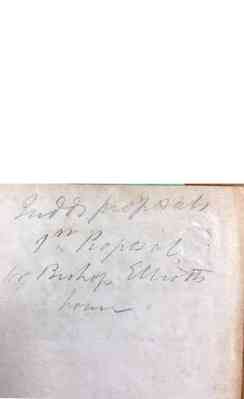 Judd's proposals
1st Proposal
for Bishop Elliotts
house